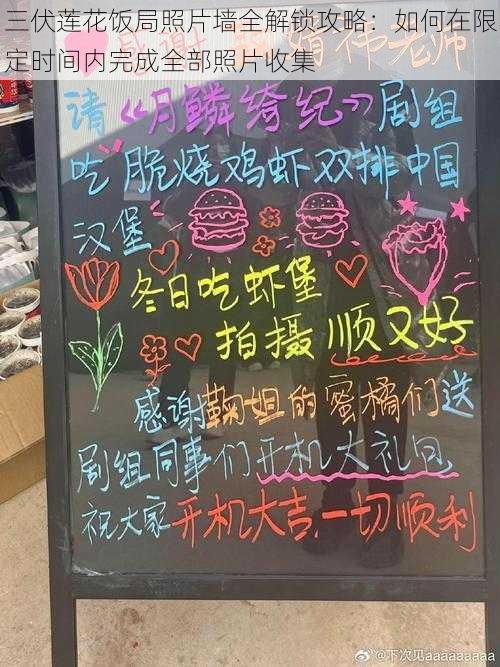 三伏莲花饭局照片墙全解锁攻略：如何在限
定时间内完成全部照片收集
请《月鳞绮纪》剧组
吃脆烧鸡虾双排中国
汉堡
冬日吃虾堡
拍摄顺又好
感谢鞠姐的蜜橘们送
剧组同事们开机大礼包
祝大家开机大吉、一切顺利
@下次见aaaaaaaaa